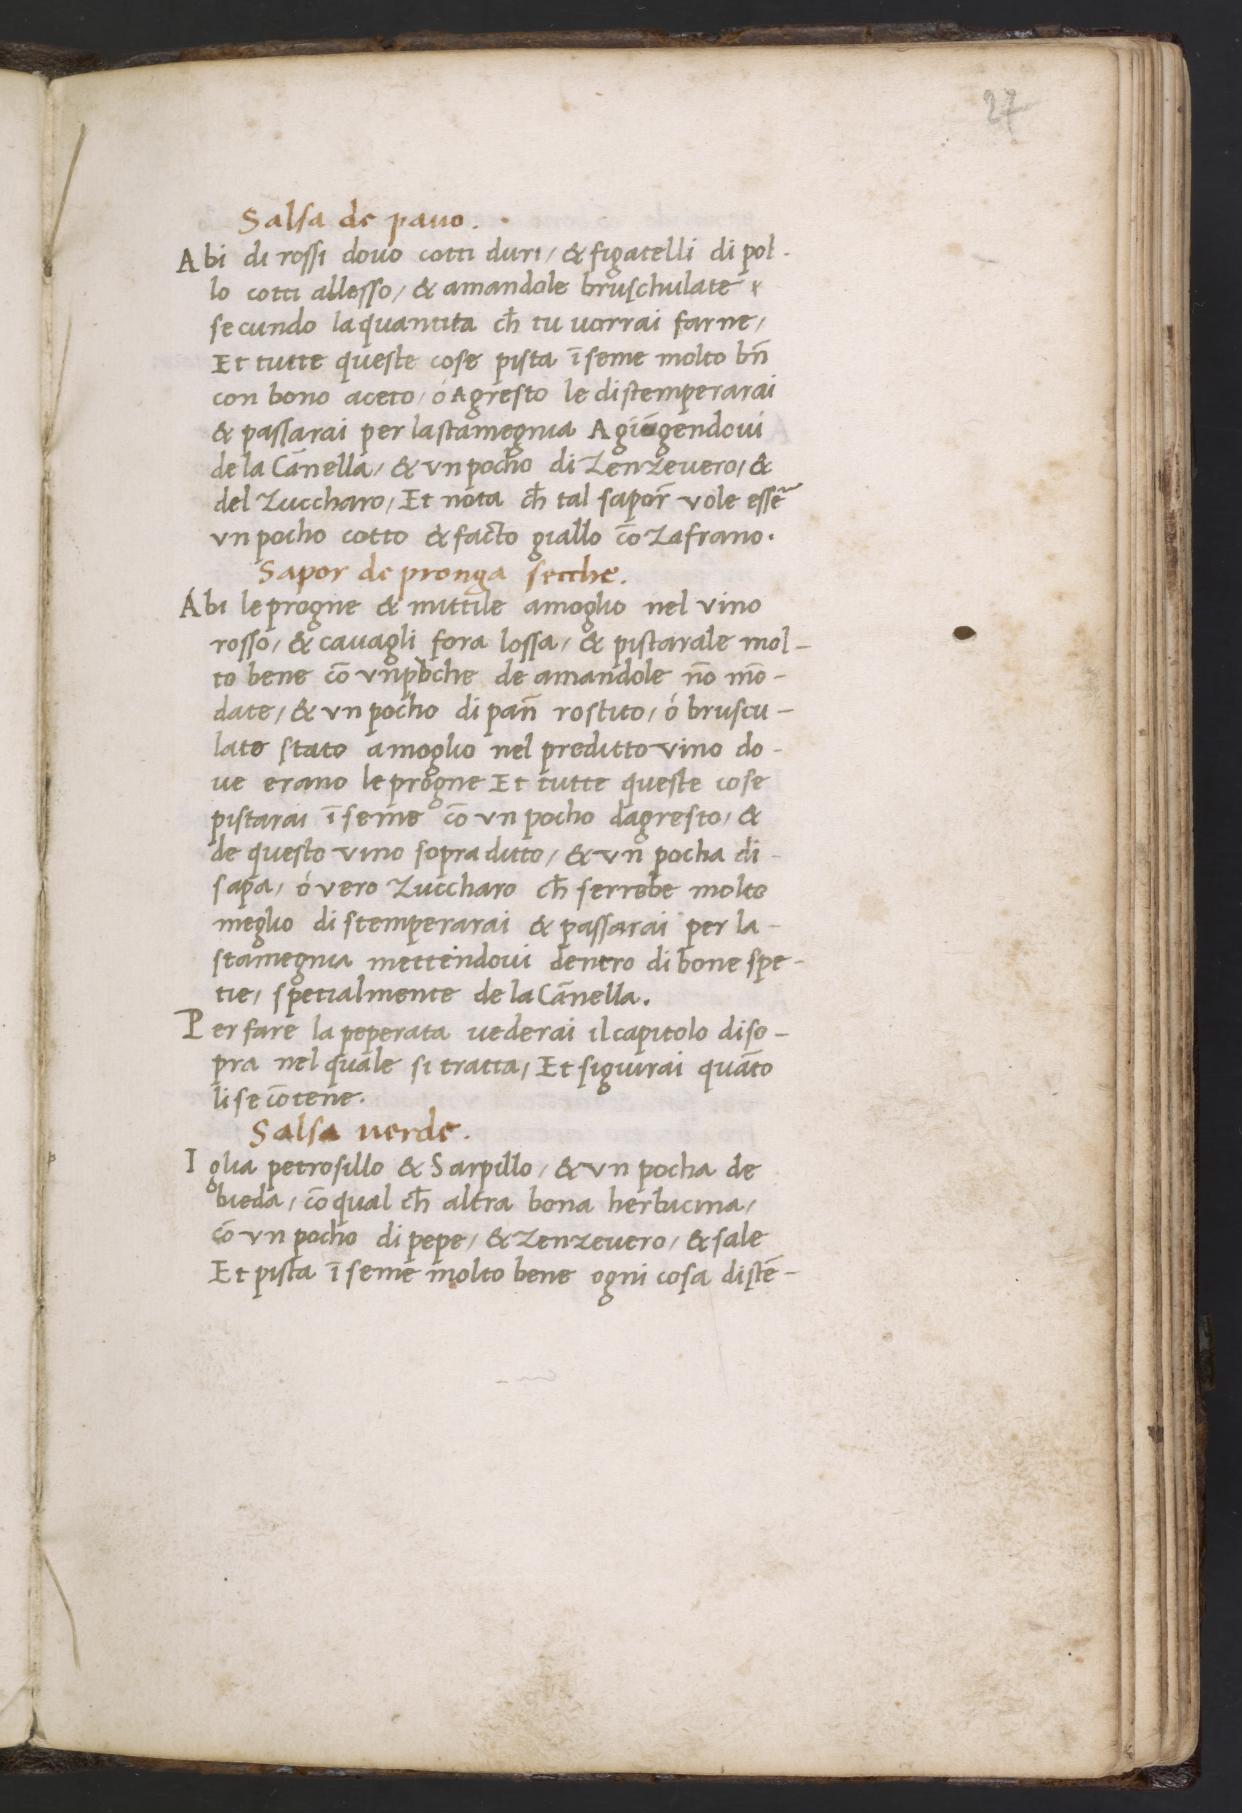 27
Salsa de pavo.
Abi di rossi dovo cotti duri, & figatelli di pol-
lo cotti allesso, & amandole bruschulate
secundo la quantita ch̄ tu vorrai farne,
Et tutte queste cose pista ī seme molto bn̄
con bono aceto, ó Agresto le distemperarai
& passarai per la stamegnia Agiūgendovi
de la Cānella, & vn pocho di Zenzevero, &
del Zuccharo, Et nota ch̄ tal sapor̄ vole esser̄
vn pocho cotto & facto giallo cō Zafrano.
Sapor de pronga secche.
Abi le progne & mittile amoglio nel vino
rosso, & cavagli fora lossa, & pistarale mol-
to bene cō vn poche de amandole nō mō-
date, & vn pocho di pan̄ rostito, ó bruscu-
lato stato amoglio nel preditto vino do-
ve erano le progne Et tutte queste cose
pistarai ī seme cō vn pocho dagresto, &
de questo vino sopra ditto, & vn pocha di-
sapa, ó vero Zuccharo ch̄ serrebe molto
meglio distemperarai & passarai per la-
stamegnia mettendovi dentro di bone spe-
tie, spetialmente de la Cānella.
Per fare la peperata vederai il capitolo diso-
pra nel quale si tratta, Et siguirai quāto
li se cōtene.
Salsa verde.
Iglia petrosillo & Sarpillo, & vn pocha de
bieda, cō qual ch̄ altra bona herbicina,
cō vn pocho di pepe, & Zenzevero, & sale
Et pista ī seme molto bene ogni cosa distē-